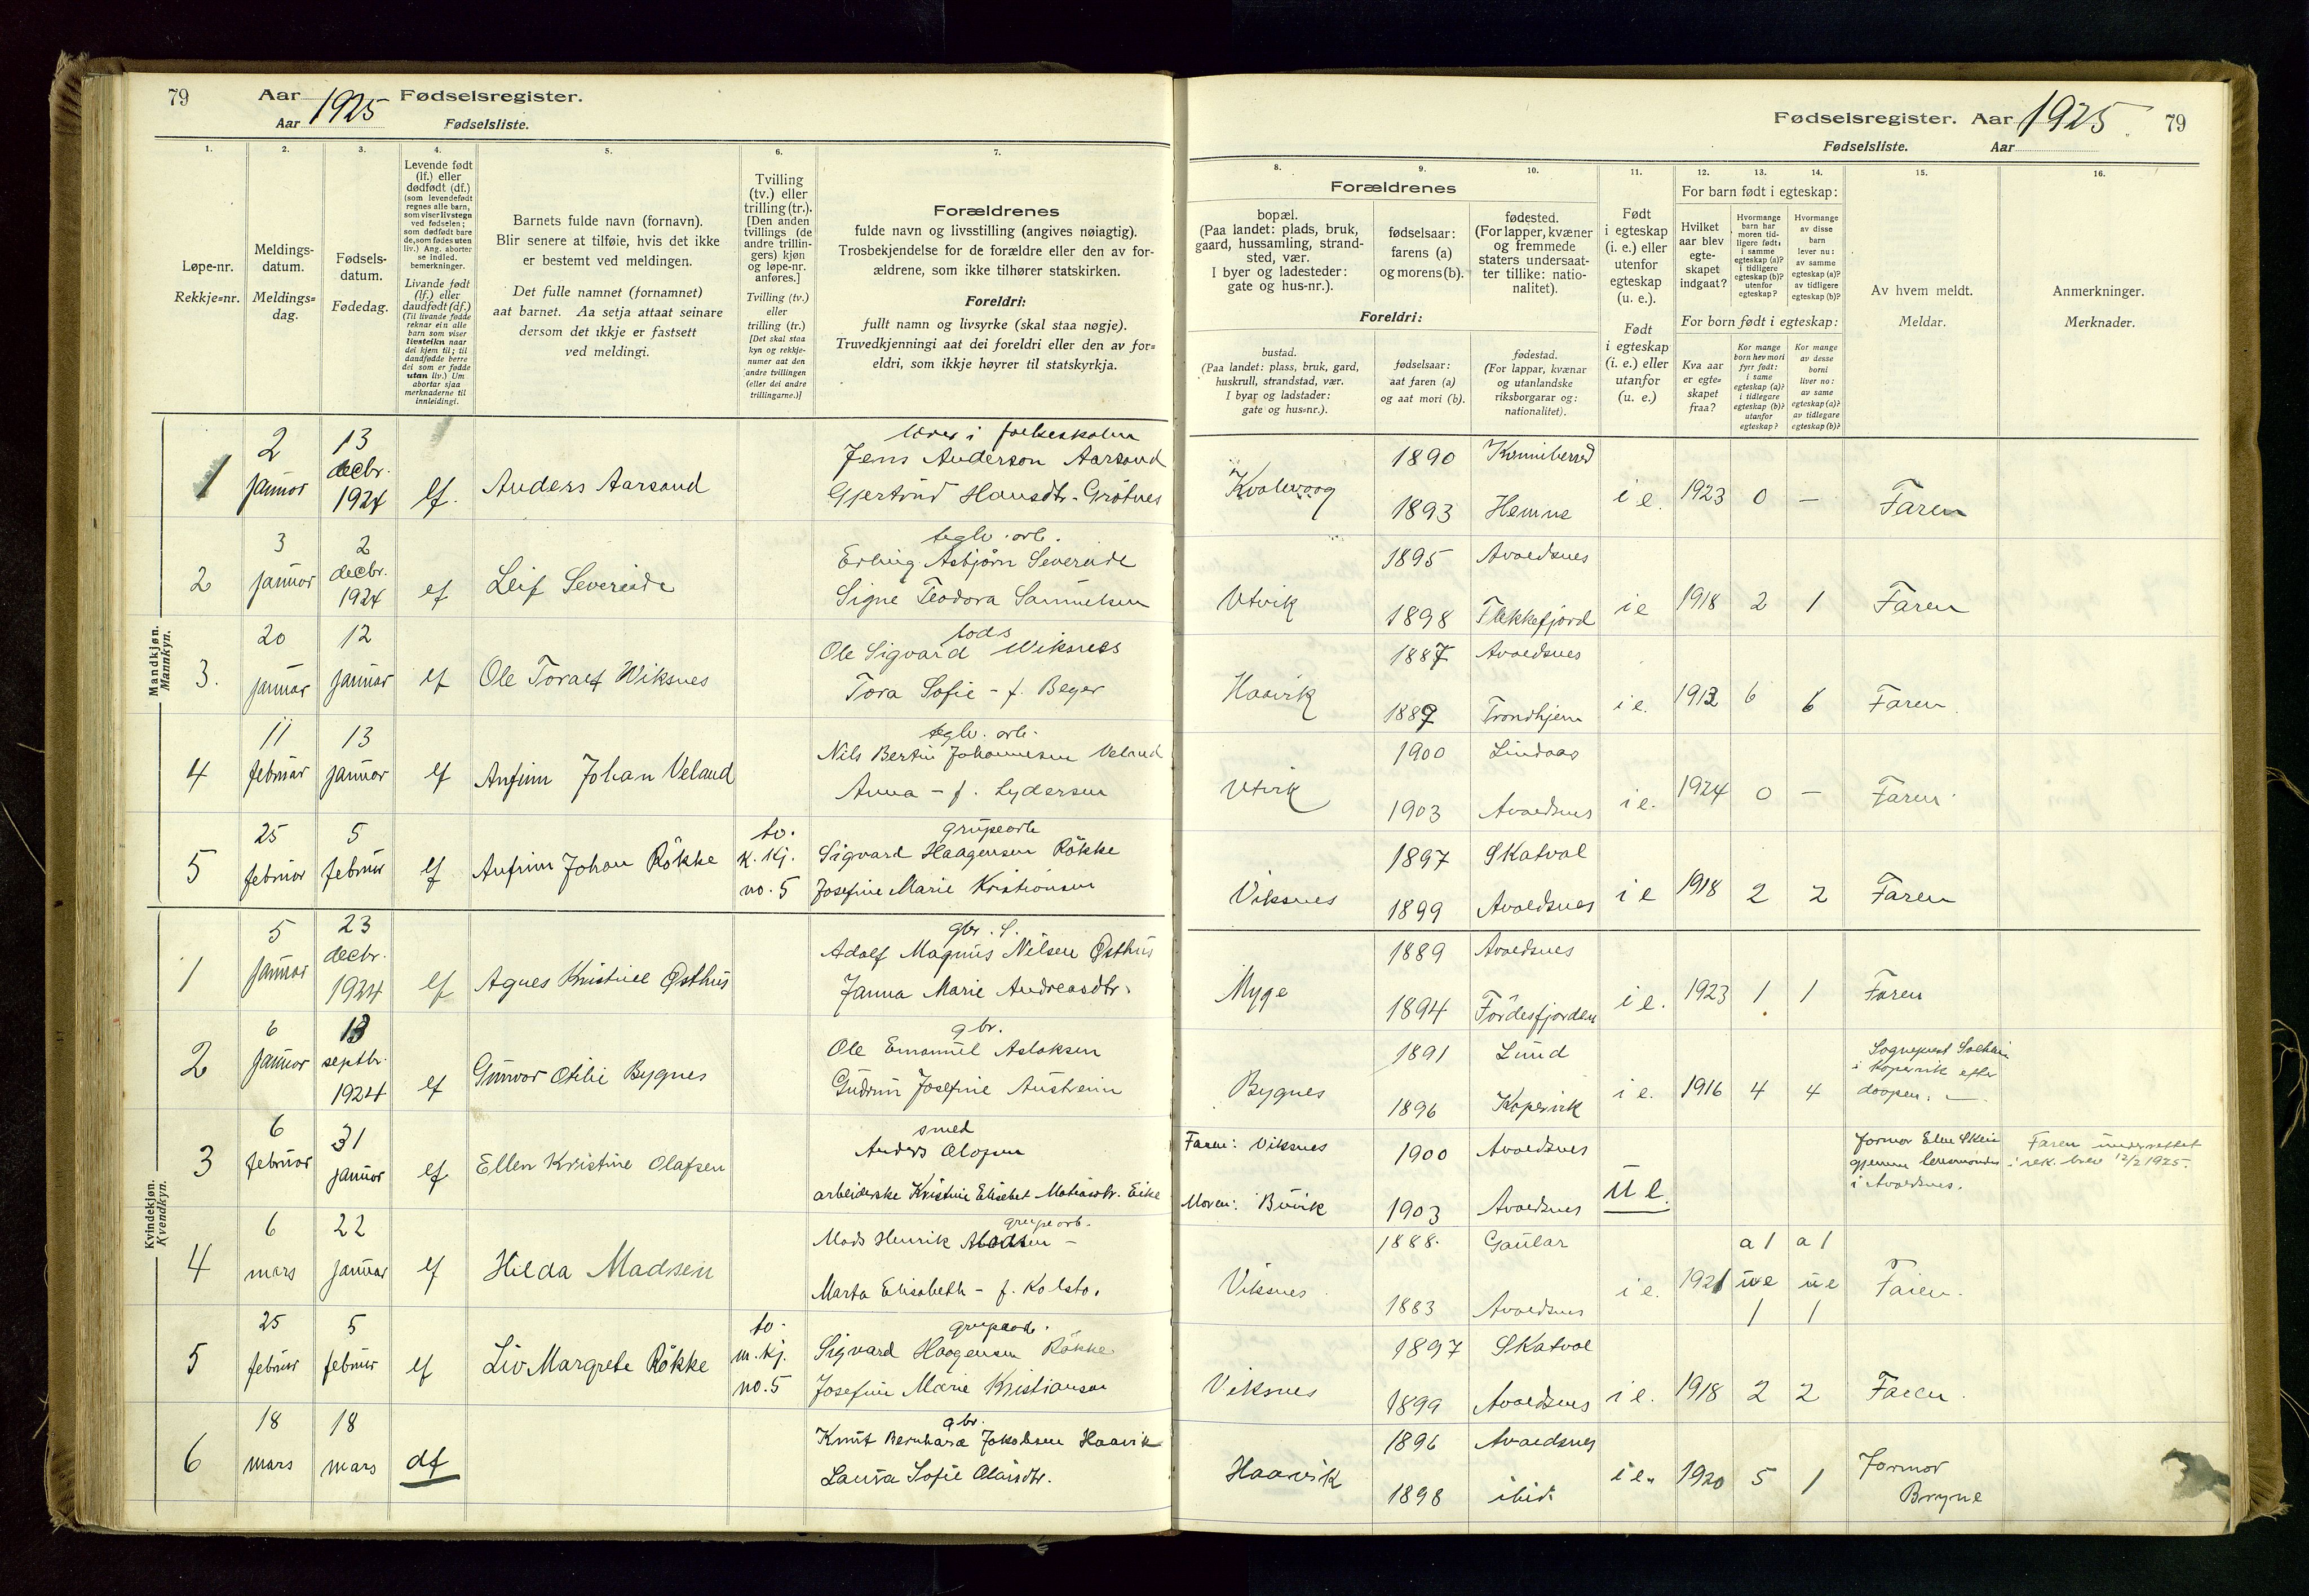 79 Aar 1925 Fødselsregister.
Aar Fødselsliste.
1. 2. 3. 4. 5. 6. 7.
Løpe-nr.
Rekkje=nr.
Meldings-
datum.
Meldings=
dag.
Fødsels-
datum.
Fødedag.
Levende født
(lf.) eller
dødfødt (df.)
(som levendefødt
regnes alle barn,
som viser livstegn
ved fødselen;
som dødfødt bare
de, som fødes uten
liv.) Ang. aborter
se indled.
bemerkninger.
Livande født
(lf.) eller
daudfødt (df.)
(Til livande fødde
reknar ein alle
barn som viser
livsteikn naar
dei kjem til; til
daudfødde berre
dei som er fødde
utan liv.) Um
abortar sjaa
merknaderne til
innleidingi.
Barnets fulde navn (fornavn).
Blir senere at tilføie, hvis det ikke
er bestemt ved meldingen.
Det fulle namnet (fornamnet)
aat barnet. Aa setja attaat seinare
dersom det ikkje er fastsett
ved meldingi.
Tvilling
(tv.) eller
trilling (tr.).
[Den anden
tvillings (de
andre trillin-
gers) kjøn
og løpe-nr.
anføres.]
Tvilling (tv.)
eller
trilling (tr.)
[Det skal staa
kyn og rekkje-
numer aat den
andre tvillingen
(eller dei andre
trillingarne.)]
Forældrenes
fulde navn og livsstilling (angives nøiagtig).
Trosbekjendelse for de forældre eller den av for-
ældrene, som ikke tilhører statskirken.
Foreldri:
fullt namn og livsyrke (skal staa nøgje).
Truvedkjenningi aat dei foreldri eller den av for=
eldri, som ikkje høyrer til statskyrkja.
Mandkjøn.
Mannkyn.
1 2 januar 13 decbr. 1924 lf. Anders Aarsand
lærer i folkeskolen
Jens Anderson Aarsand
Gjertrud Hansdtr. Grötnes
2 3 januar 2 decbr. 1924 lf Leif Severeide
teglv. arb.
Erling Asbjørn Severeide
Signe Teodora Samuelsen
3. 20 januar 12 januar lf Ole Toralf Wiksnes
lods
Ole Sigvard Wiksnes
Tora Sofie - f. Beyer
4 11 februar 13 januar lf Anfinn Johan Veland
teglv. arb.
Nils Bertin Johannesen Veland
Anna - f. Lydersen
5 25 februar 5 februar lf Anfinn Johan Rökke tv. k. kj. no. 5
grubearb
Sigvard Haagensen Rökke
Josefine Marie Kristiansen
Kvindekjøn.
Kvendkyn.
1 5 januar 23 decbr. 1924 lf Agnes Kristine Østhus
gbr. s.
Adolf Magnus Nilsen Østhus
Janna Marie Andreasdtr.
2 6 januar 13 septbr. 1924 lf Gunvor Otilie Bygnes
gbr.
Ole Emanuel Aslaksen
Gudrun Josefine Austheim
3 6 februar 31 januar lf Ellen Kristine Olafsen
smed
Anders Olafsen
arbeiderske Kristine Elisabet Matiasdtr. Eike
4 6 mars 22 januar lf Hilda Madsen
grubearb.
Mads Henrik Madsen -
Marta Elisabeth - f. Kolstø.
5 25 februar 5 februar lf Liv Margrete Rökke tv. m. kj. no. 5
grubearb.
Sigvard Haagensen Rökke
Josefine Marie Kristiansen
6 18 mars 18 mars df
gbr.
Knut Bernhard Jakobsen Haavik
Laura Sofie Olaisdtr.
Fødselsregister. Aar 1925. 79
Fødselsliste. Aar
8. 9. 10. 11. 12. 13. 14. 15. 16.
Forældrenes
bopæl.
(Paa landet: plads, bruk,
gaard, hussamling, strand-
sted, vær.
I byer og ladesteder:
gate og hus-nr.).
fødselsaar:
farens (a)
og morens (b).
fødested.
(For lapper, kvæner
og fremmede
staters undersaat-
ter tillike: natio-
nalitet).
Foreldri:
bustad.
(Paa landet: plass, bruk, gard,
huskrull, strandstad, vær.
I byar og ladstader:
gate og hus=nr.).
fødselsaar:
aat faren (a)
og aat mori (b).
fødestad.
(For lappar, kvænar
og utanlandske
riksborgarar og:
nationalitet).
Født
i egteskap
(i. e.) eller
utenfor
egteskap
(u. e.).
Født
i egteskap
(i. e.) eller
utanfor
(u. e.)
For barn født i egteskap:
Hvilket
aar blev
egte-
skapet
indgaat?
Hvormange
barn har
moren tid-
ligere født:
i samme
egteskap (a)?
i tidligere
egteskap (b)?
utenfor
egteskap?
Hvormange
av disse
barn
lever nu:
av samme
egteskap (a)?
av tidligere
egteskap (b)?
For born født i egteskap:
Kva aar
er egte=
skapet
fraa?
Kor mange
born hev mori
fyrr født:
i same
egteskap (a)?
i tidlegare
egteskap (b)?
utanfor
egteskap?
Kor mange
av desse
borni
liver no:
av same
egteskap (a)?
av tidlegare
egteskap (b)?
Av hvem meldt.
Meldar.
Anmerkninger.
Merknader.
Kvalevaag 1890 Kvinnherred
1893 Hemne i e. 1923 0 - Faren
Utvik 1895 Avaldsnes
1898 Flekkefjord i e 1918 2 1 Faren
Haavik 1887 Avaldsnes
1889 Trondhjem i e. 1912 6 6 Faren
Utvik 1900 Lindaas
1903 Avaldsnes i e. 1924 0 - Faren
Viksnes 1897 Skatval
1899 Avaldsnes i e 1918 2 2 Faren
Myge 1889 Avaldsnes
1894 Fördesfjorden i e. 1923 1 1 Faren
Bygnes 1891 Lund
1896 Kopervik i e. 1916 4 4
Sogneprest
i Kopervik efter
daapen. -
Faren: Viksnes 1900 Avaldsnes
Moren: Buvik 1903 Avaldsnes u e.
farmor Elen Skeie
gjennem lensmanden
i Avaldsnes.
Faren underrettet
i rek. brev 12/2 1925.
Viksnes 1888. Gaular
1883 Avaldsnes i e. 1921 a 1 a 1
ue ue
1 1
Faren.
Viksnes 1897 Skatval
1899 Avaldsnes i e. 1918 2 2 Faren.
Haavik 1896 Avaldsnes
1898 ibid. i e. 1920 5 1
Jormor
Bryne